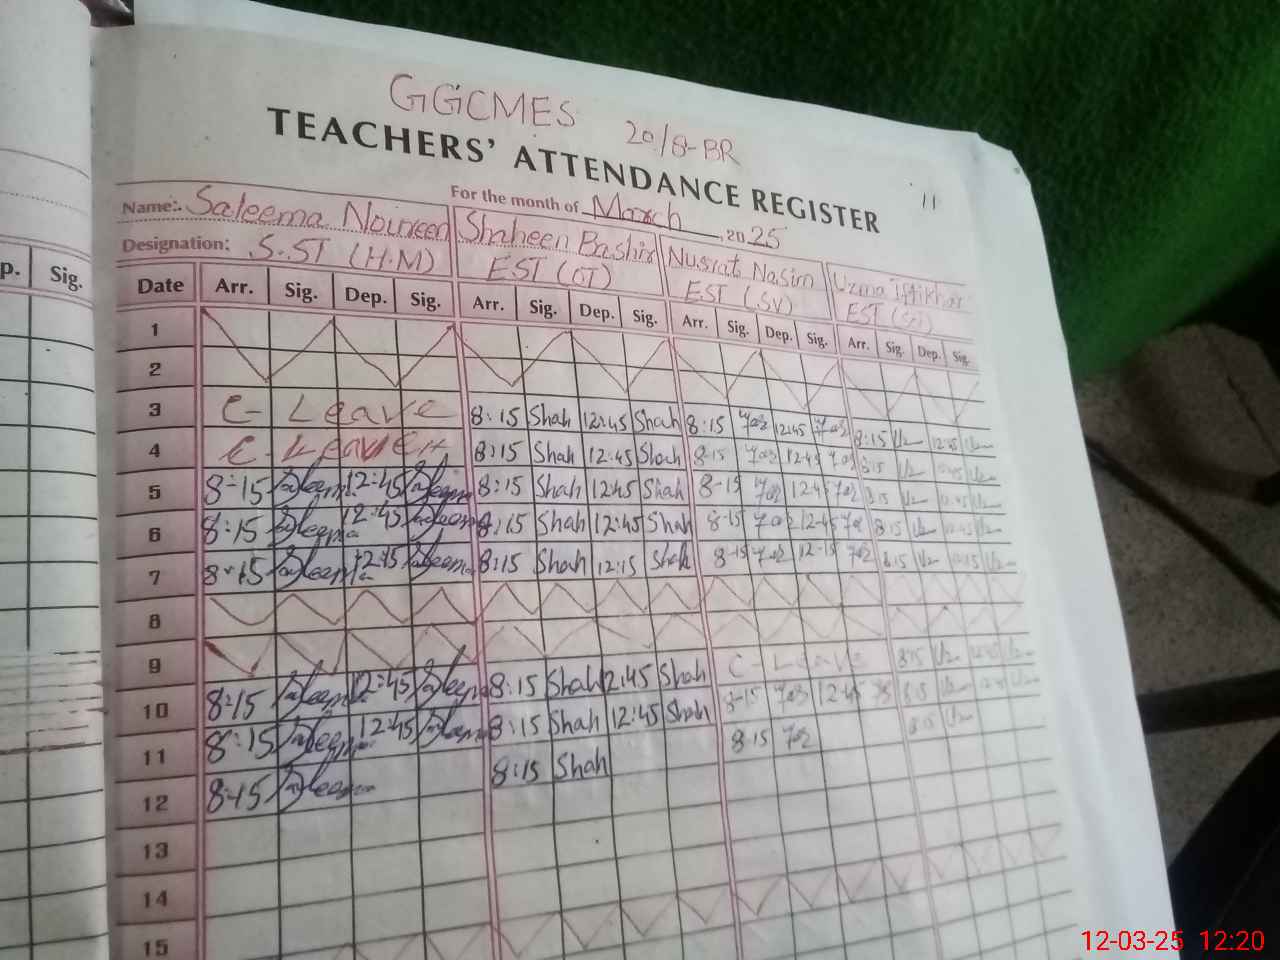 GGCMES 20/8-BR
TEACHERS' ATTENDANCE REGISTER
11
For the month of March, 2025
Name:- Saleema Noureen Shaheen Bashir Nusrat Nasim Uzma Iftikhar
Designation: S.ST (H.M) EST (OT) EST (SV)
p. Sig. Date Arr. Sig. Dep. Sig. Arr. Sig. Dep. Sig. Arr. Sig. Dep. Sig. Arr. Sig. Dep. Sig.
1
2
3 C- Leave 8:15 Shah 12:45 Shah 8:15 12:45 8:15 12:45
4 C- Leave 8:15 Shah 12:45 Shah 8-15 12-45 8:15 12:45
5 8:15 Saleema 12:45 Saleema 8:15 Shah 12:45 Shah 8-15 12-45 8:15 12:45
6 8:15 Saleema 12:45 Saleema 8:15 Shah 12:45 Shah 8-15 12-45 8:15 12:45
7 8:15 Saleema 12:15 Saleema 8:15 Shah 12:15 Shah 8-15 12-15 8:15 12:15
8
9
10 8:15 Saleema 12:45 Saleema 8:15 Shah 12:45 Shah C- Leave 8:15 12:45
11 8:15 Saleema 12:45 Saleema 8:15 Shah 12:45 Shah 8-15 12-45 8:15
12 8:15 Saleema 8:15 Shah 8-15 8:15
13
14
15
12-03-25 12:20